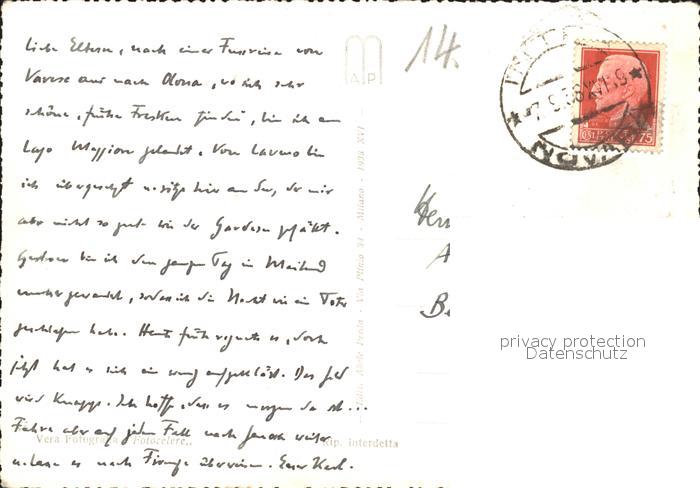 Liebe Eltern, nach einer Fussreise von
Varese aus nach Olona, wo ich sehr
schöne, frühe Fresken finde, bin ich am
Lago Maggiore gelandet. Von Laveno bin
ich übergesetzt u. sitze hier am See, der mir
aber nicht so gut wie der Gardasee gefällt.
Gestern bin ich den ganzen Tag in Mailand
umhergewandert, sodass ich die Nacht wie ein Toter
geschlafen habe. Heute früh regnete es, doch
jetzt hat es sich ein wenig aufgeklärt. Das Geld
wird knapp. Ich hoffe, dass es morgen da ist...
Fahre aber auf jeden Fall nach Genova weiter
u. lasse es nach Firenze überweisen. Euer Karl.
Vera Fotografia "Fotocelere"
Rip. interdetta
Milano - 1938 XVI
14.
NOVARA
75
privacy protection
Datenschutz